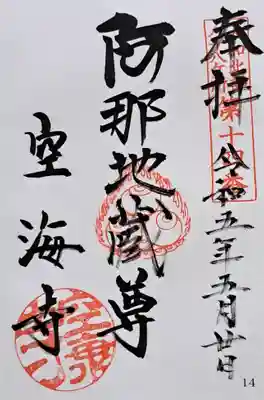 奉拝
第十四番
令和五年五月廿日
阿那地蔵尊
空海寺
14